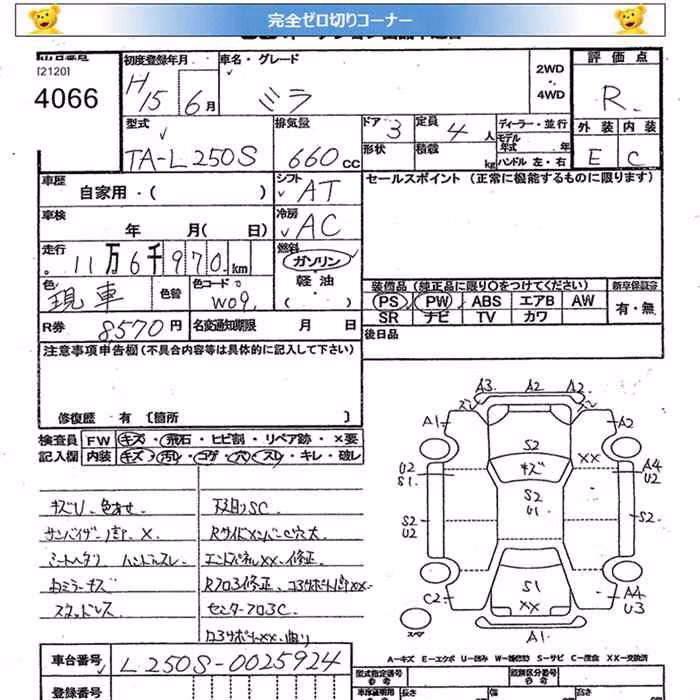 完全ゼロ切りコーナー
[2120]
4066
初度登録年月
H15 6月
車名・グレード
ミラ
2WD
4WD
評価点
R
型式
TA-L250S
排気量
660cc
ドア 3
形状
定員 4人
積載 kg
ディーラー・並行
モデル年式 年
ハンドル 左・右
外装 内装
E C
車歴
自家用・( )
シフト AT
セールスポイント (正常に機能するものに限ります)
車検
年 月( 日)
冷房 AC
走行
11万6千970km
燃料
ガソリン
軽油
( )
色 現車
色替
色コード W09
装備品 (純正品に限り○をつけてください)
新車保証書
PS PW ABS エアB AW
SR ナビ TV カワ
有・無
R券 8570円
名変通知期限 月 日
後日品
注意事項申告欄 (不具合内容等は具体的に記入して下さい)
修復歴 有 〔箇所 〕
検査員 FW キズ・飛石・ヒビ割・リペア跡・×要
記入欄 内装 キズ・汚レ・コゲ・穴・スレ・キレ・破レ
キズU、色あせ
サンバイザー X
シートヘタリ ハンドルスレ
内ミラーキズ
スタッドレス
Rサイドメンバー
エンドパネルXX、修正
Rフロア修正
センターフロアC
A3 A2 A2
A1 A2
S2
キズ
XX
U2 S1
A4 U2
S2 U1
S2 U2
S2
S1
XX
C2
A4 U3
スペア
A1
A-キズ E-エクボ U-凹み W-補修 S-サビ C-腐食 XX-交換済
車台番号 L250S-0025924
型式指定番号
類別区分番号
登録番号
長さ